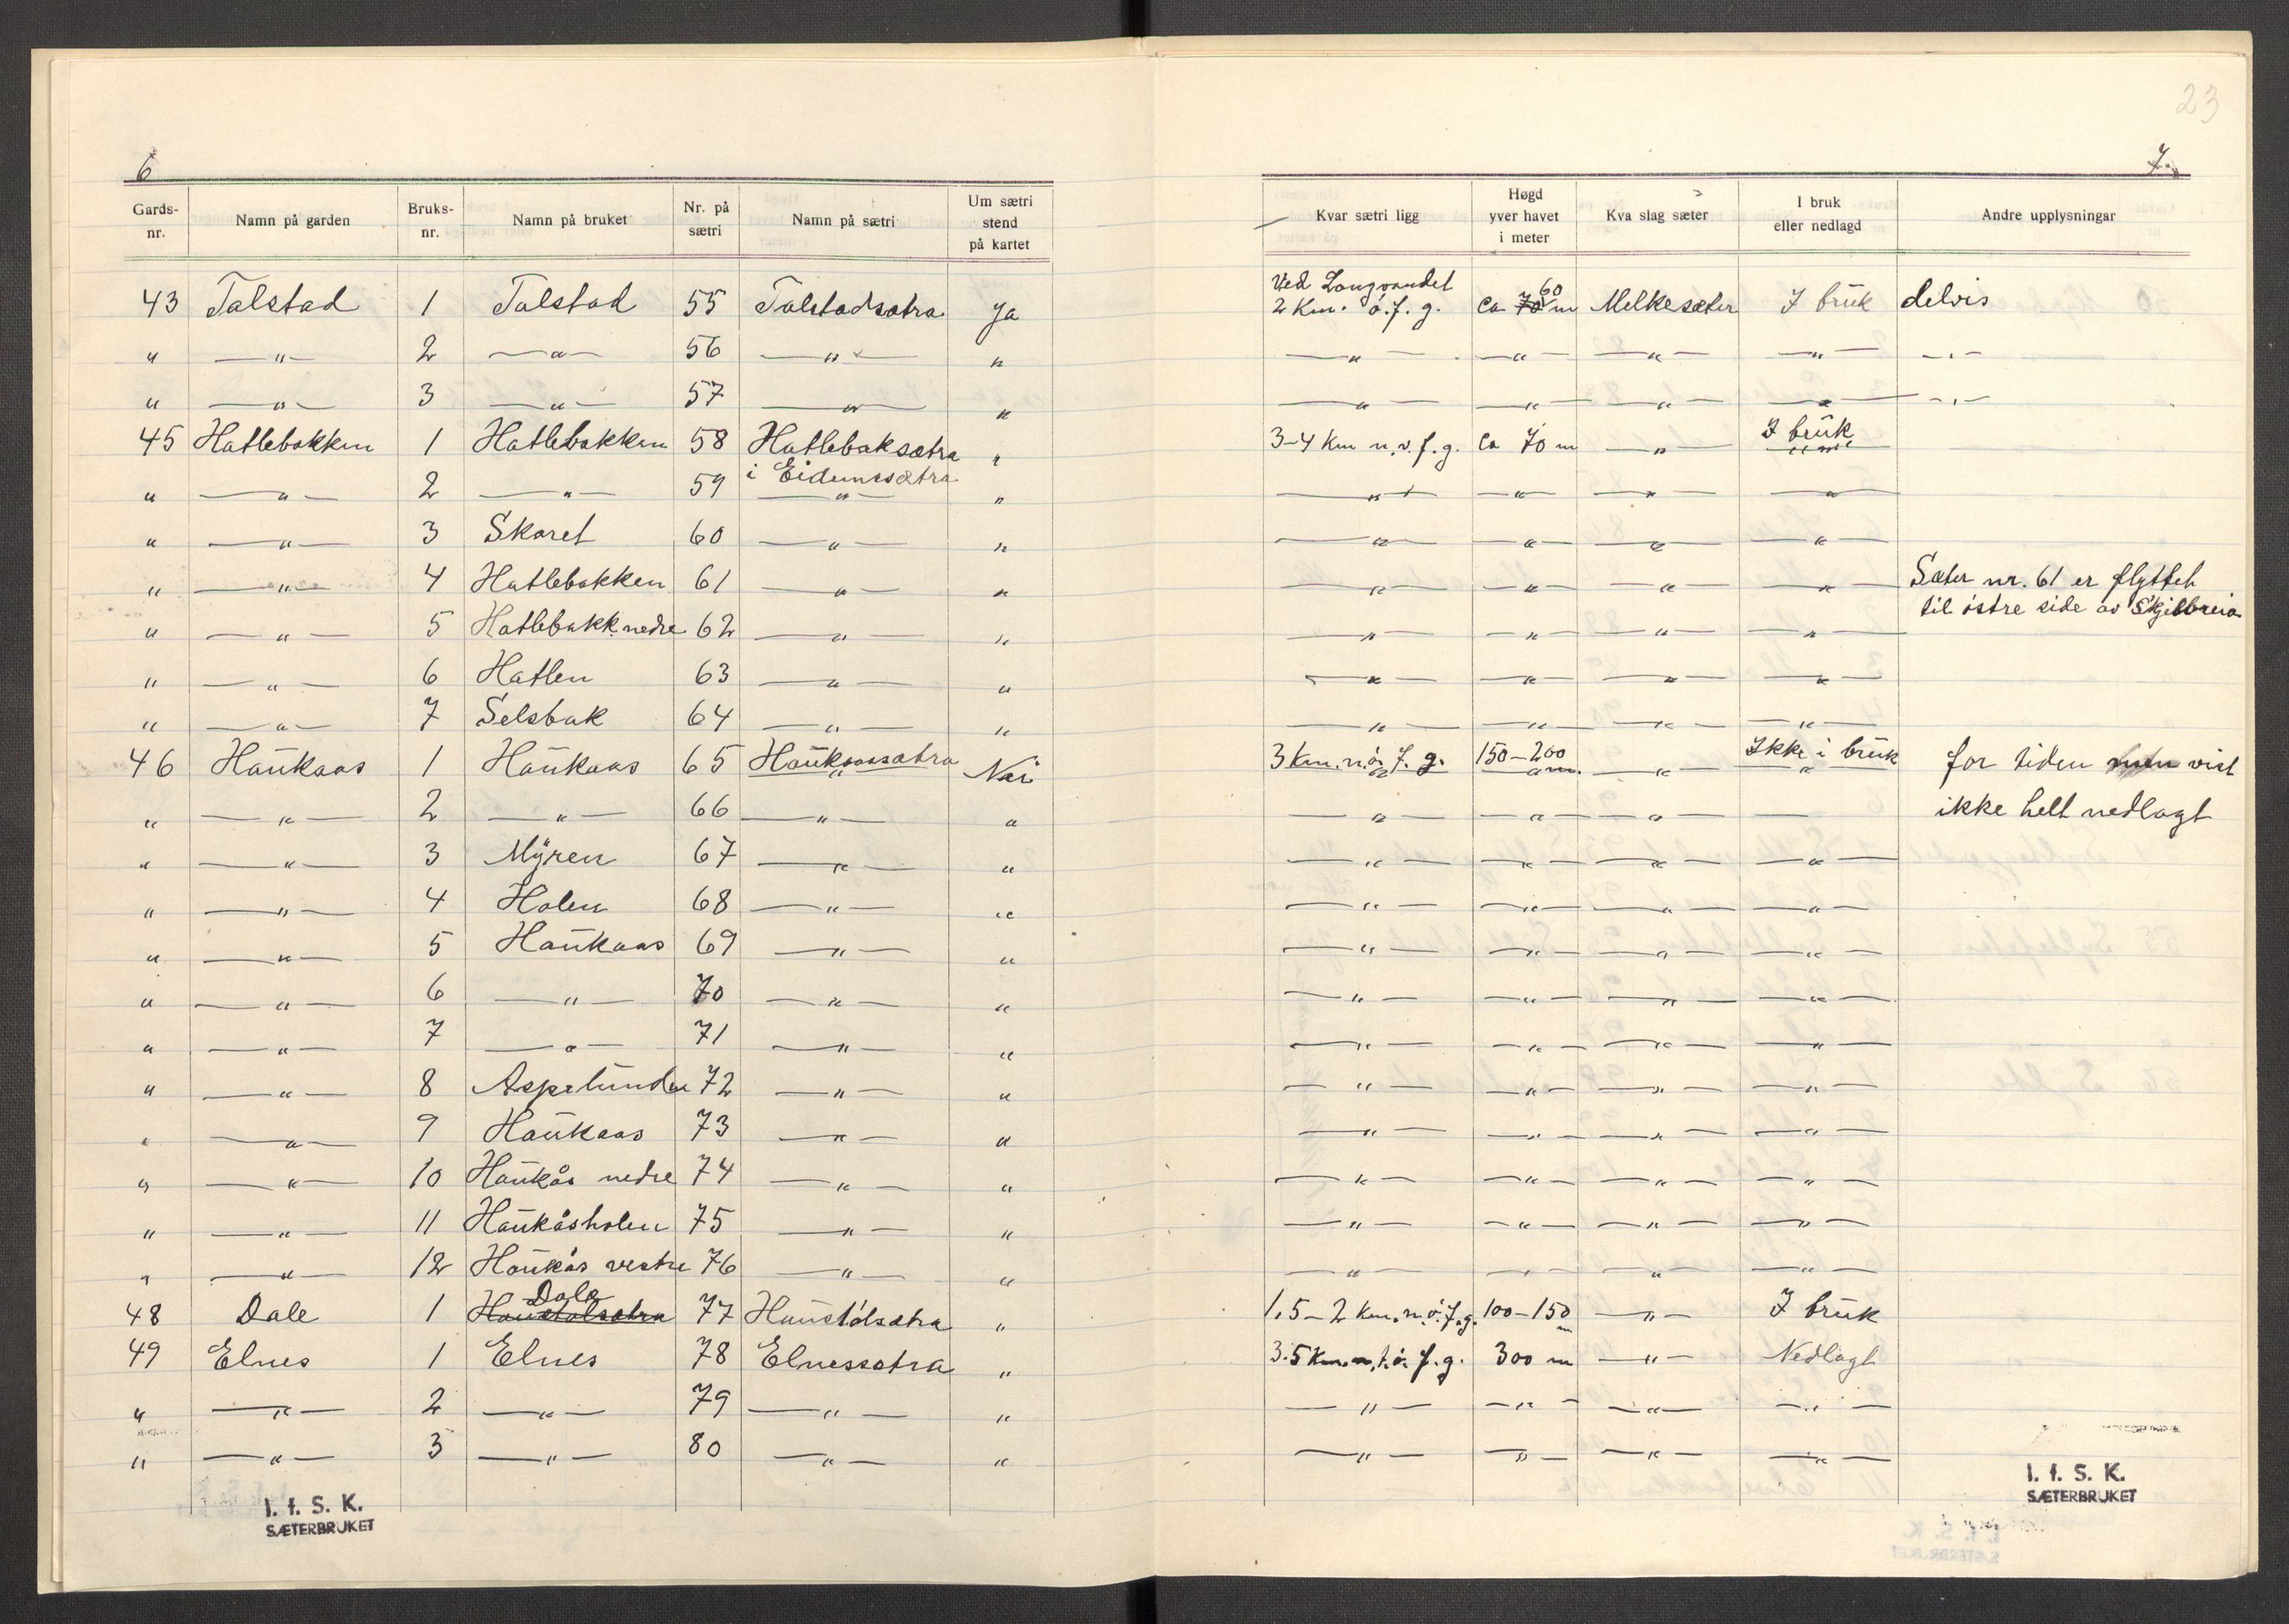 23
6
7
Gards-nr. Namn på garden Bruks-nr. Namn på bruket Nr. på sætri Namn på sætri Um sætri stend på kartet Kvar sætri ligg Høgd yver havet i meter Kva slag sæter I bruk eller nedlagd Andre upplysningar
43 Talstad 1 Talstad 55 Talstadsætra Ja Ved Langvandet 2 Km. ö.f.g. Ca 70 60 m Melkesæter I bruk delvis
" —"— 2 —"— 56 —"— " —"— —"— —"— —"— —"—
" —"— 3 —"— 57 —"— " —"— —"— —"— —"— —"—
45 Hatlebakken 1 Hatlebakken 58 Hatlebaksætra i Eidemssætra " 3-4 Km n.v.f.g. Ca 70 m —"— I bruk
" —"— 2 —"— 59 —"— " —"— —"— —"— —"—
" —"— 3 Skaret 60 —"— " —"— —"— —"— —"—
" —"— 4 Hatlebakken 61 —"— " —"— —"— —"— —"— Sæter nr. 61 er flyttet
" —"— 5 Hatlebakk nedre 62 —"— " —"— —"— —"— —"— til östre side av Skjelbreia
" —"— 6 Hatlen 63 —"— " —"— —"— —"— —"—
" —"— 7 Selsbak 64 —"— " —"— —"— —"— —"—
46 Haukaas 1 Haukaas 65 Haukaassætra Nei 3 Km. n.ö.f.g. 150-200 m. —"— Ikke i bruk for tiden men vist
" —"— 2 —"— 66 —"— " —"— —"— —"— — ikke helt nedlagt
" —"— 3 Myren 67 —"— " —"— —"— —"— —"—
" —"— 4 Holen 68 —"— " —"— —"— —"— —"—
" —"— 5 Haukaas 69 —"— " —"— —"— —"— —"—
" —"— 6 —"— 70 —"— " —"— —"— —"— —"—
" —"— 7 —"— 71 —"— " —"— —"— —"— —"—
" —"— 8 Aspelunden 72 —"— " —"— —"— —"— —"—
" —"— 9 Haukaas 73 —"— " —"— —"— —"— —"—
" —"— 10 Haukås nedre 74 —"— " —"— —"— —"— —"—
" —"— 11 Haukåsholen 75 —"— " —"— —"— —"— —"—
" —"— 12 Haukås vestre 76 —"— " —"— —"— —"— —"—
48 Dale 1 Haustölsætra Dale 77 Haustölsætra " 1,5-2 Km. n.ö.f.g. 100-150 m —"— I bruk
49 Elnes 1 Elnes 78 Elnessætra " 3.5 Km. ö.f.g. 300 m —"— Nedlagt
" —"— 2 —"— 79 —"— " —"— —"— —"— —"—
" —"— 3 —"— 80 —"— " —"— —"— —"— —"—
I. f. S. K.
SÆTERBRUKET
I. f. S. K.
SÆTERBRUKET